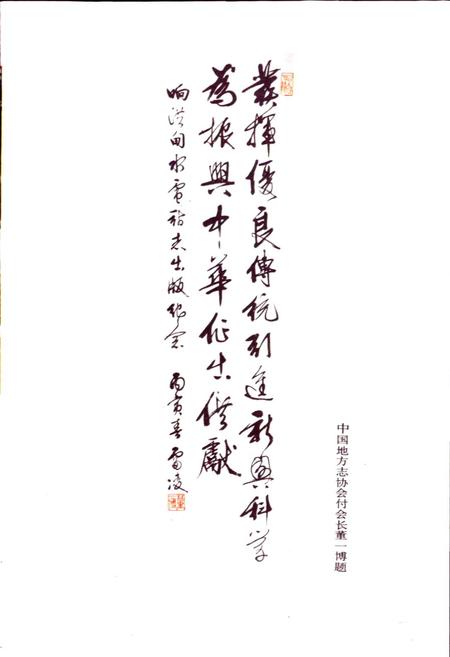 發揮優良傳統引進新興科学
為振興中華作出供獻
响洪甸水電站志出版纪念 丙寅春
中国地方志协会付会长董一博题